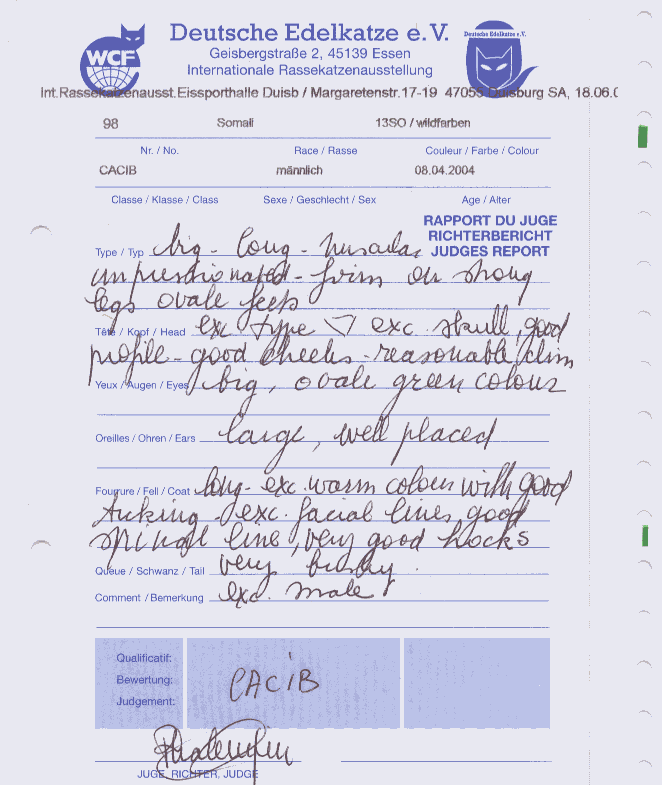 Deutsche Edelkatze e.V.
Geisbergstraße 2, 45139 Essen
Internationale Rassekatzenausstellung
WCF
Deutsche Edelkatze e.V.
Int.Rassekatzenausst.Eissporthalle Duisb / Margaretenstr.17-19 47055 Duisburg SA, 18.06.0
98 Somali 13SO / wildfarben
Nr. / No. Race / Rasse Couleur / Farbe / Colour
CACIB männlich 08.04.2004
Classe / Klasse / Class Sexe / Geschlecht / Sex Age / Alter
RAPPORT DU JUGE
RICHTERBERICHT
JUDGES REPORT
Type / Typ big - long -
firm on strong
legs ovale feet
Tête / Kopf / Head exc type exc. skull, good
profile - good cheeks - reasonable chin
Yeux / Augen / Eyes big, ovale green colour
Oreilles / Ohren / Ears large, well placed
Fourrure / Fell / Coat long - exc. warm colour with good
ticking - exc. facial lines good
spinal line, very good hocks
Queue / Schwanz / Tail very bushy.
Comment / Bemerkung exc. male
Qualificatif:
Bewertung:
Judgement:
CACIB
JUGE, RICHTER, JUDGE